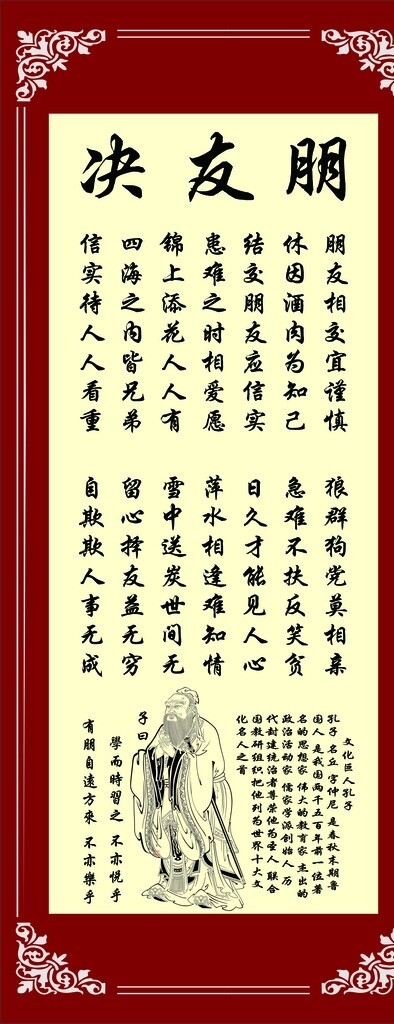 朋友决
朋友相交宜谨慎
狼群狗党莫相亲
休因酒肉为知己
急难不扶反笑贫
结交朋友应信实
日久才能见人心
患难之时相爱愿
萍水相逢难知情
锦上添花人人有
雪中送炭世间无
四海之内皆兄弟
留心择友益无穷
信实待人人看重
自欺欺人事无成
文化巨人孔子
孔子 名丘 字仲尼 是春秋末期鲁
国人 是我国两千五百年前一位著
名的思想家 伟大的教育家 杰出的
政治活动家 儒家学派创始人 历
代封建统治者尊荣他为圣人 联合
国教研组织把他列为世界十大文
化名人之首
子曰
學而時習之 不亦悦乎
有朋自遠方來 不亦樂乎